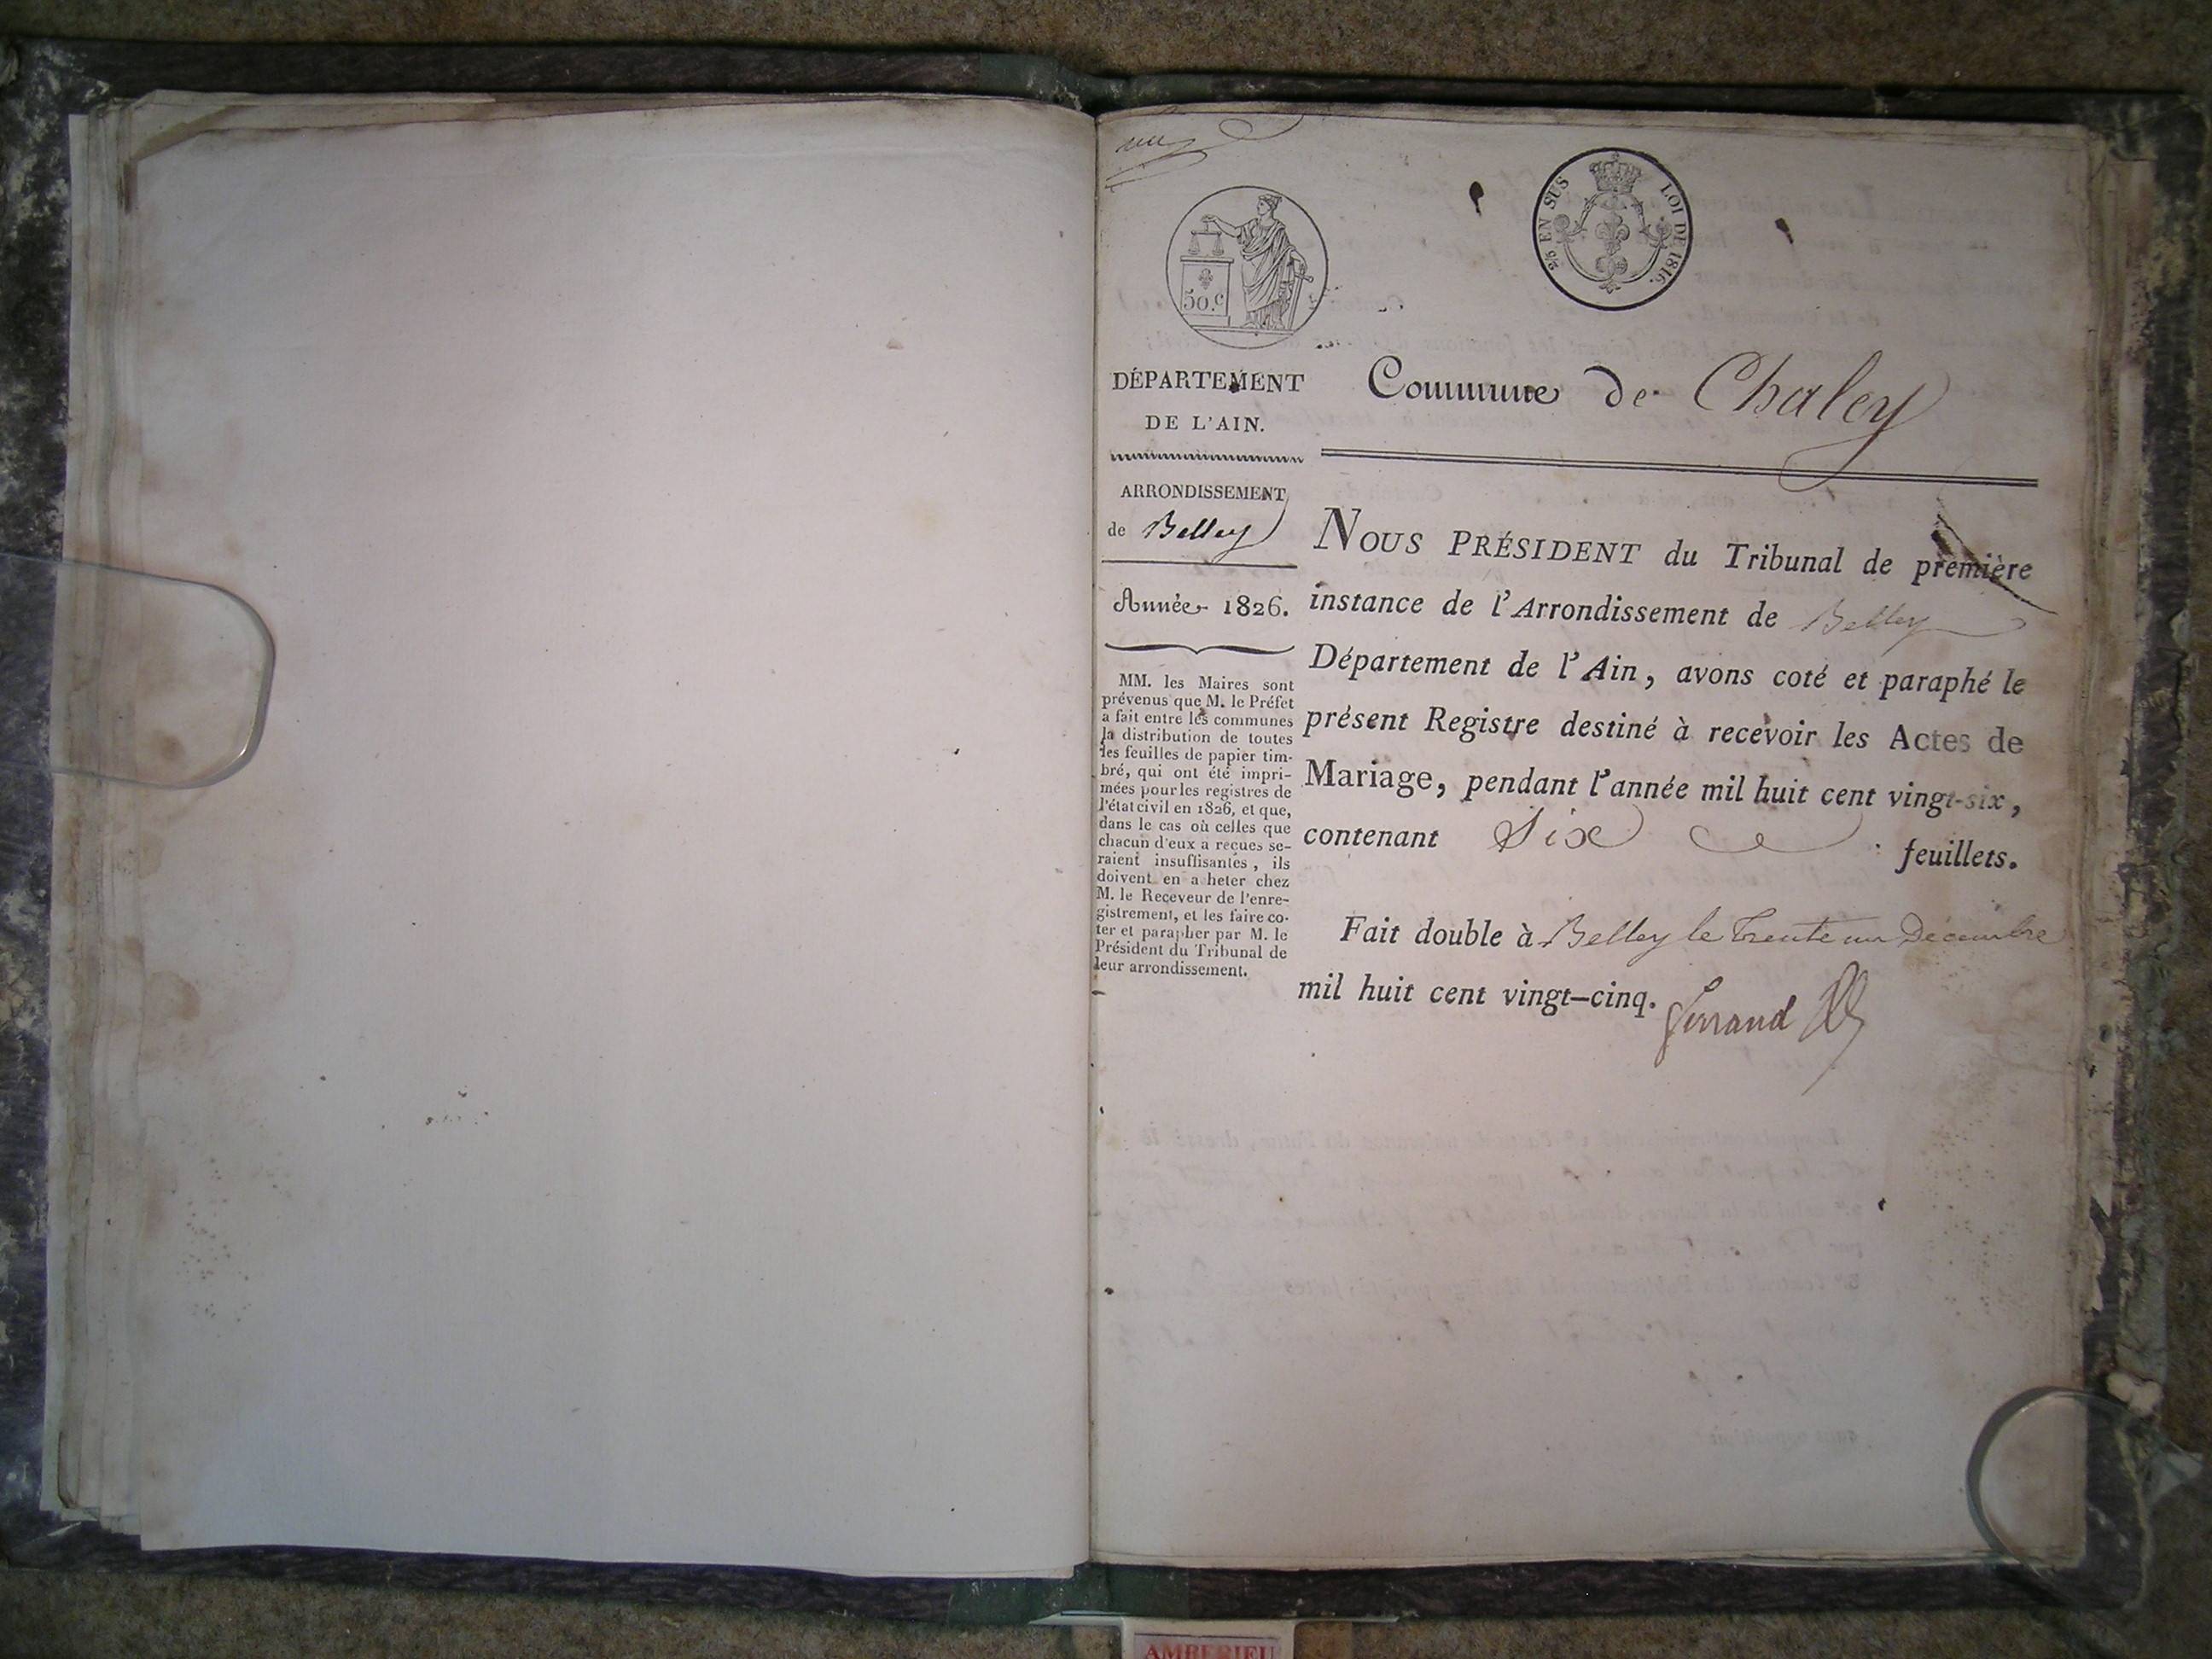 50.c
2/5 EN SUS
LOI DE 1816.
DÉPARTEMENT
DE L'AIN.
ARRONDISSEMENT
de Belley
Année 1826.
MM. les Maires sont
prévenus que M. le Préfet
a fait entre les communes
la distribution de toutes
les feuilles de papier tim-
bré, qui ont été impri-
mées pour les registres de
l'état civil en 1826, et que,
dans le cas où celles que
chacun d'eux a reçues se-
raient insuffisantes, ils
doivent en a heter chez
M. le Receveur de l'enre-
gistrement, et les faire co-
ter et parapher par M. le
Président du Tribunal de
leur arrondissement.
Commune de Chaley
NOUS PRÉSIDENT du Tribunal de première
instance de l'Arrondissement de Belley
Département de l'Ain, avons coté et paraphé le
présent Registre destiné à recevoir les Actes de
Mariage, pendant l'année mil huit cent vingt-six,
contenant Six feuillets.
Fait double à Belley le trente un Decembre
mil huit cent vingt-cinq.
AMBERIEU